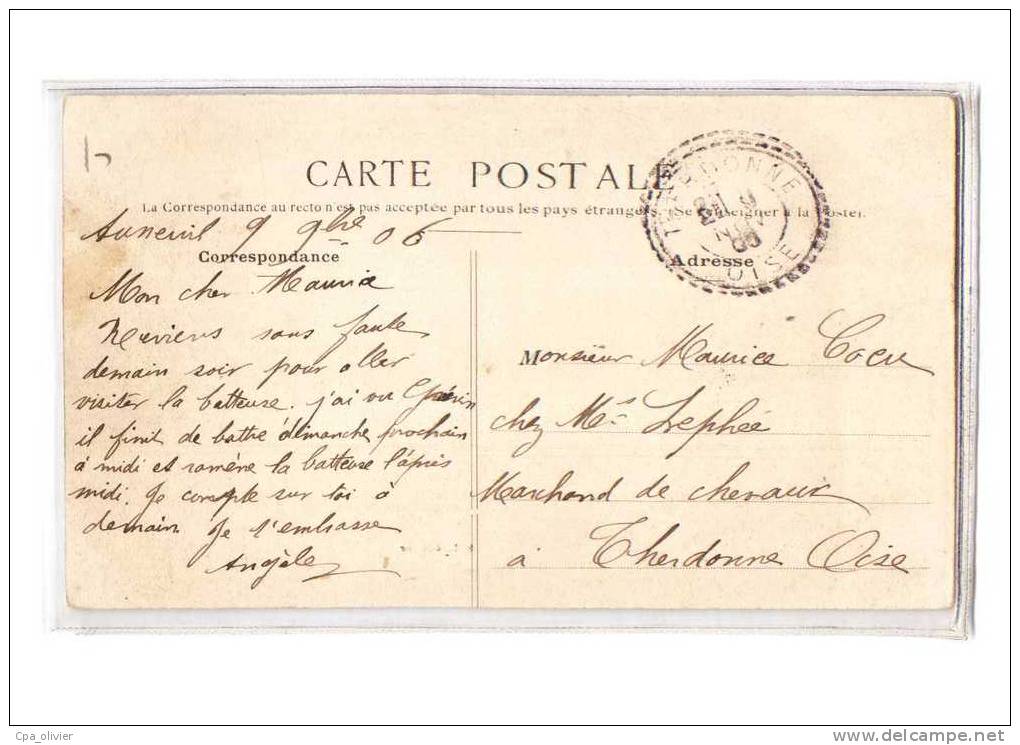 CARTE POSTALE
La Correspondance au recto n'est pas acceptée par tous les pays étrangers. (Se renseigner à la Poste).
Auneuil 9 9bre 06
Correspondance
Mon cher Maurice
Reviens sans faute
demain soir pour aller
visiter la batteuse. j'ai vu
il finit de battre dimanche prochain
à midi et ramène la batteuse l'après
midi. Je compte sur toi à
demain Je t'embrasse
Angèle
THERDONNE
9
NOV
06
OISE
Adresse
Monsieur Maurice Cocu
chez Mr Lephée
Marchand de chevaux
à Therdonne Oise
Cpa_olivier
www.delcampe.net